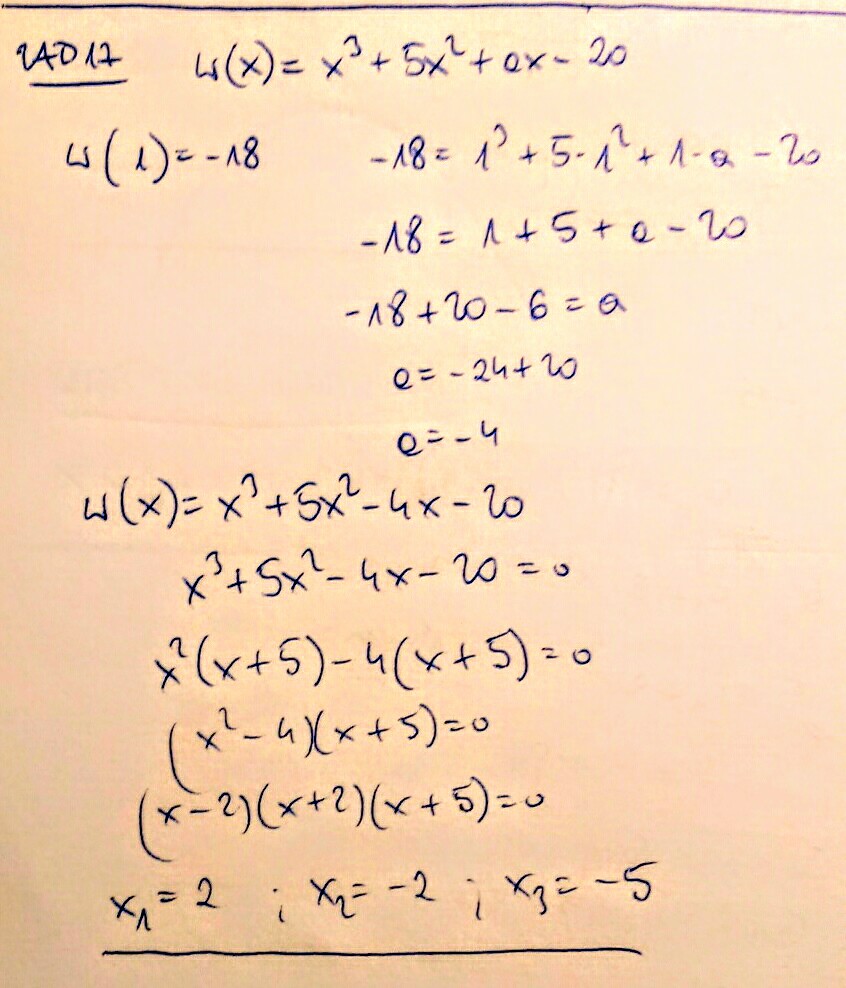 ZAD 17 W(x) = x³ + 5x² + ax - 20
W(1) = -18 -18 = 1³ + 5·1² + 1·a - 20
-18 = 1 + 5 + a - 20
-18 + 20 - 6 = a
a = -24 + 20
a = -4
W(x) = x³ + 5x² - 4x - 20
x³ + 5x² - 4x - 20 = 0
x²(x + 5) - 4(x + 5) = 0
(x² - 4)(x + 5) = 0
(x - 2)(x + 2)(x + 5) = 0
x₁ = 2 ; x₂ = -2 ; x₃ = -5